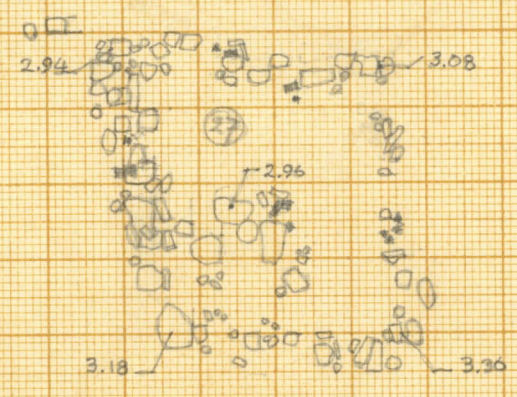 2.94
3.08
27
2.96
3.18
3.36